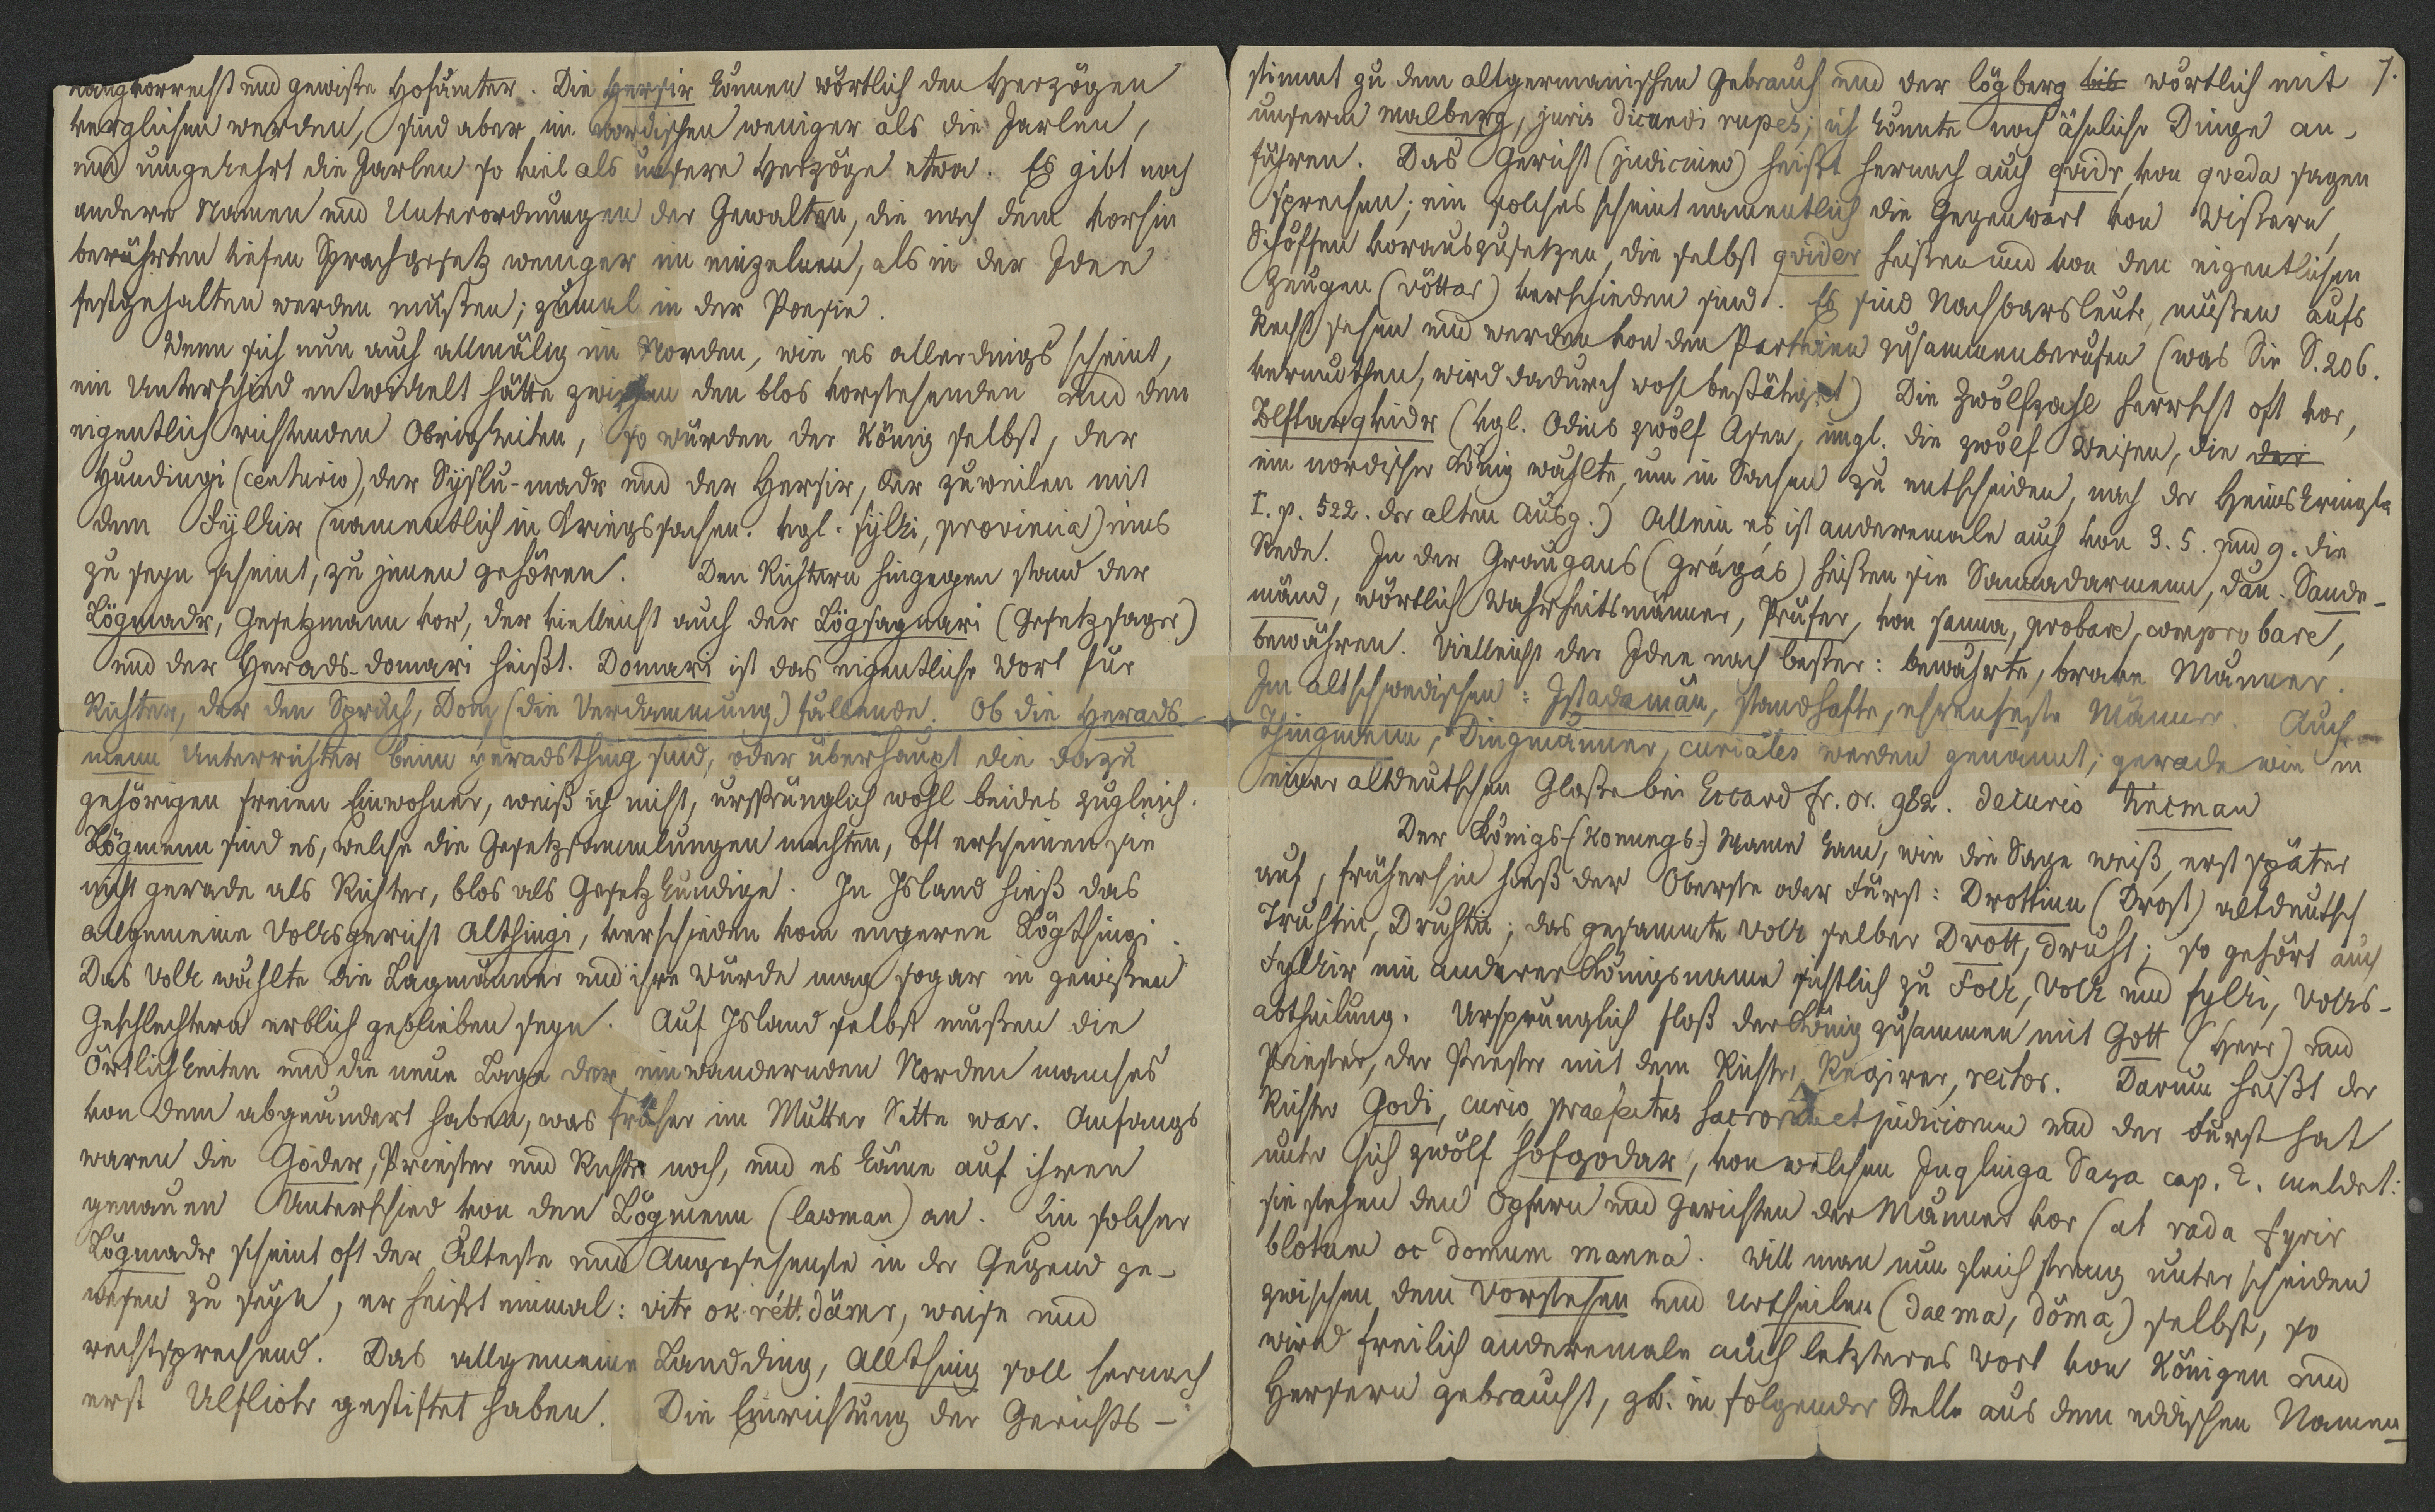 rangvorrecht und gewisse Hofämter. Die Hersir können wörtlich den Herzögen
verglichen werden, sind aber im nordischen weniger als die Jarlen,
und umgekehrt die Jarlen so viel als unsere Herzöge etwa. Es gibt noch
andere Namen und Unterordnungen der Gewalten, die nach dem vorhin
berührten tiefen Sprachgesetz weniger im einzelnen, als in der Idee
festgehalten werden mußten; zumal in der Poesie.
Wenn sich nun auch allmälig im Norden, wie es allerdings scheint,
ein Unterschied entwickelt hätte zwischen den blos vorstehenden und den
eigentlich richtenden Obrigkeiten, so würden der König selbst, der
Hundingi (centurio), der Syslu-madr und der Hersir, der zuweilen mit
dem Fylkir (namentlich in Kriegssachen. vgl. fylki, provincia) eins
zu seyn scheint, zu jenen gehören. Den Richtern hingegen stand der
Lögmadr, Gesetzmann vor, der vielleicht auch der Lögsagnari (Gesetzsager)
und der Herads-domari heißt. Domari ist das eigentliche Wort für
Richter, der den Spruch, Dom (die Verdammung) fällende. Ob die Herads-
menn Unterrichter beim heradsthing sind, oder überhaupt die dazu
gehörigen freien Einwohner, weiß ich nicht, ursprünglich wohl beides zugleich.
Lögmenn sind es, welche die Gesetzsammlungen machten, oft erscheinen sie
nicht gerade als Richter, blos als Gesetzkundige. In Island hieß das
allgemeine Volksgericht Althingi, verschieden vom engeren Lögthingi.
Das Volk wählte die Lagmänner und ihre Würde mag sogar in gewissen
Geschlechtern erblich geblieben seyn. Auf Island selbst mußten die
Örtlichkeiten und die neue Lage der einwandernden Norden manches
von dem abgeändert haben, was früher im Mutter Sitte war. Anfangs
waren die Goder, Priester und Richter noch, und es käme auf ihren
genauen Unterschied von den Lögmenn (lawman) an. Ein solcher
Lögmadr scheint oft der Älteste und Angesehenste in der Gegend ge-
wesen zu seyn, er heißt einmal: vitr ok rétt.dämr, weise und
rechtsprechend. Das allgemeine Landding, Allthing soll hernach
erst Ulfliotr gestiftet haben. Die Einrichtung der Gerichts-
7.
stimmt zu dem altgermanischen Gebrauch und der lögberg wörtlich mit
unserm malberg, juris dicundi rupes; ich könnte noch ähnliche Dinge an-
führen. Das Gericht (judicium) heißt hernach auch qvidr, von qveda sagen
sprechen; ein solches scheint namentlich die Gegenwart von Wissern,
Schöffen vorauszusetzen, die selbst qvider heißen und von den eigentlichen
Zeugen (vöttar) verschieden sind. Es sind Nachbarsleute, müssen aufs
Recht sehen und werden von den Partheien zusammenberufen (was Sie S. 206.
vermuthen, wird dadurch wohl bestätiget) Die Zwölfzahl herrscht oft vor,
Tolftarqvidr (vgl. Odins zwölf Asen, imgl. die zwölf Weisen, die der
ein nordischer König wählte, um in Sachen zu entscheiden, nach der Heimskringla
I. p. 522. der alten Ausg.) Allein es ist anderemale auch von 3. 5. und 9. die
Rede. In der Graugans (Grágás) heißen sie Sannadarmenn, dän. Sande-
mänd, wörtlich Wahrheitsmänner, Prüfer, von sanna, probare, comprobare,
bewähren. Vielleicht der Idee nach besser: bewährte, brave Männer.
Im altschwedischen: Istadamän, standhafte, ehrenfeste Männer. Auch
Thingmenn, Dingmänner, curiales werden genannt; gerade wie in
einer altdeutschen Glosse bei Eccard fr. or. 982. decurio
Der Königs-(Konungs-) Name kam, wie die Sage weiß, erst später
auf, früherhin hieß der Oberste oder Fürst: Drottinn (Drost) altdeutsch
Truhtin, Druhtin; das gesammte Volk selber Drott, druht; so gehört auch
Fylkir ein anderer Königsname sichtlich zu Folk, Volk und fylki, Volks-
abtheilung. Ursprünglich floß der König zusammen mit Gott (Herr) und
Priester, der Priester mit dem Richter, Regirer, rector. Darum heißt der
Richter Godi, curio, praefectus sacrorum et judiciorum und der Fürst hat
unter sich zwölf hofgodar, von welchen Ynglinga Saga cap. 2. meldet:
sie stehen den Opfern und Gerichten der Männer vor (at rada fyrir
blotum oc domum manna. Will man nun gleich streng unterscheiden
zwischen dem Vorstehen und Urtheilen (daema, döma) selbst, so
wird freilich anderemale auch letzteres Wort von Königen und
Hersern gebraucht, zb. in folgender Stelle aus dem eddischen Namen-